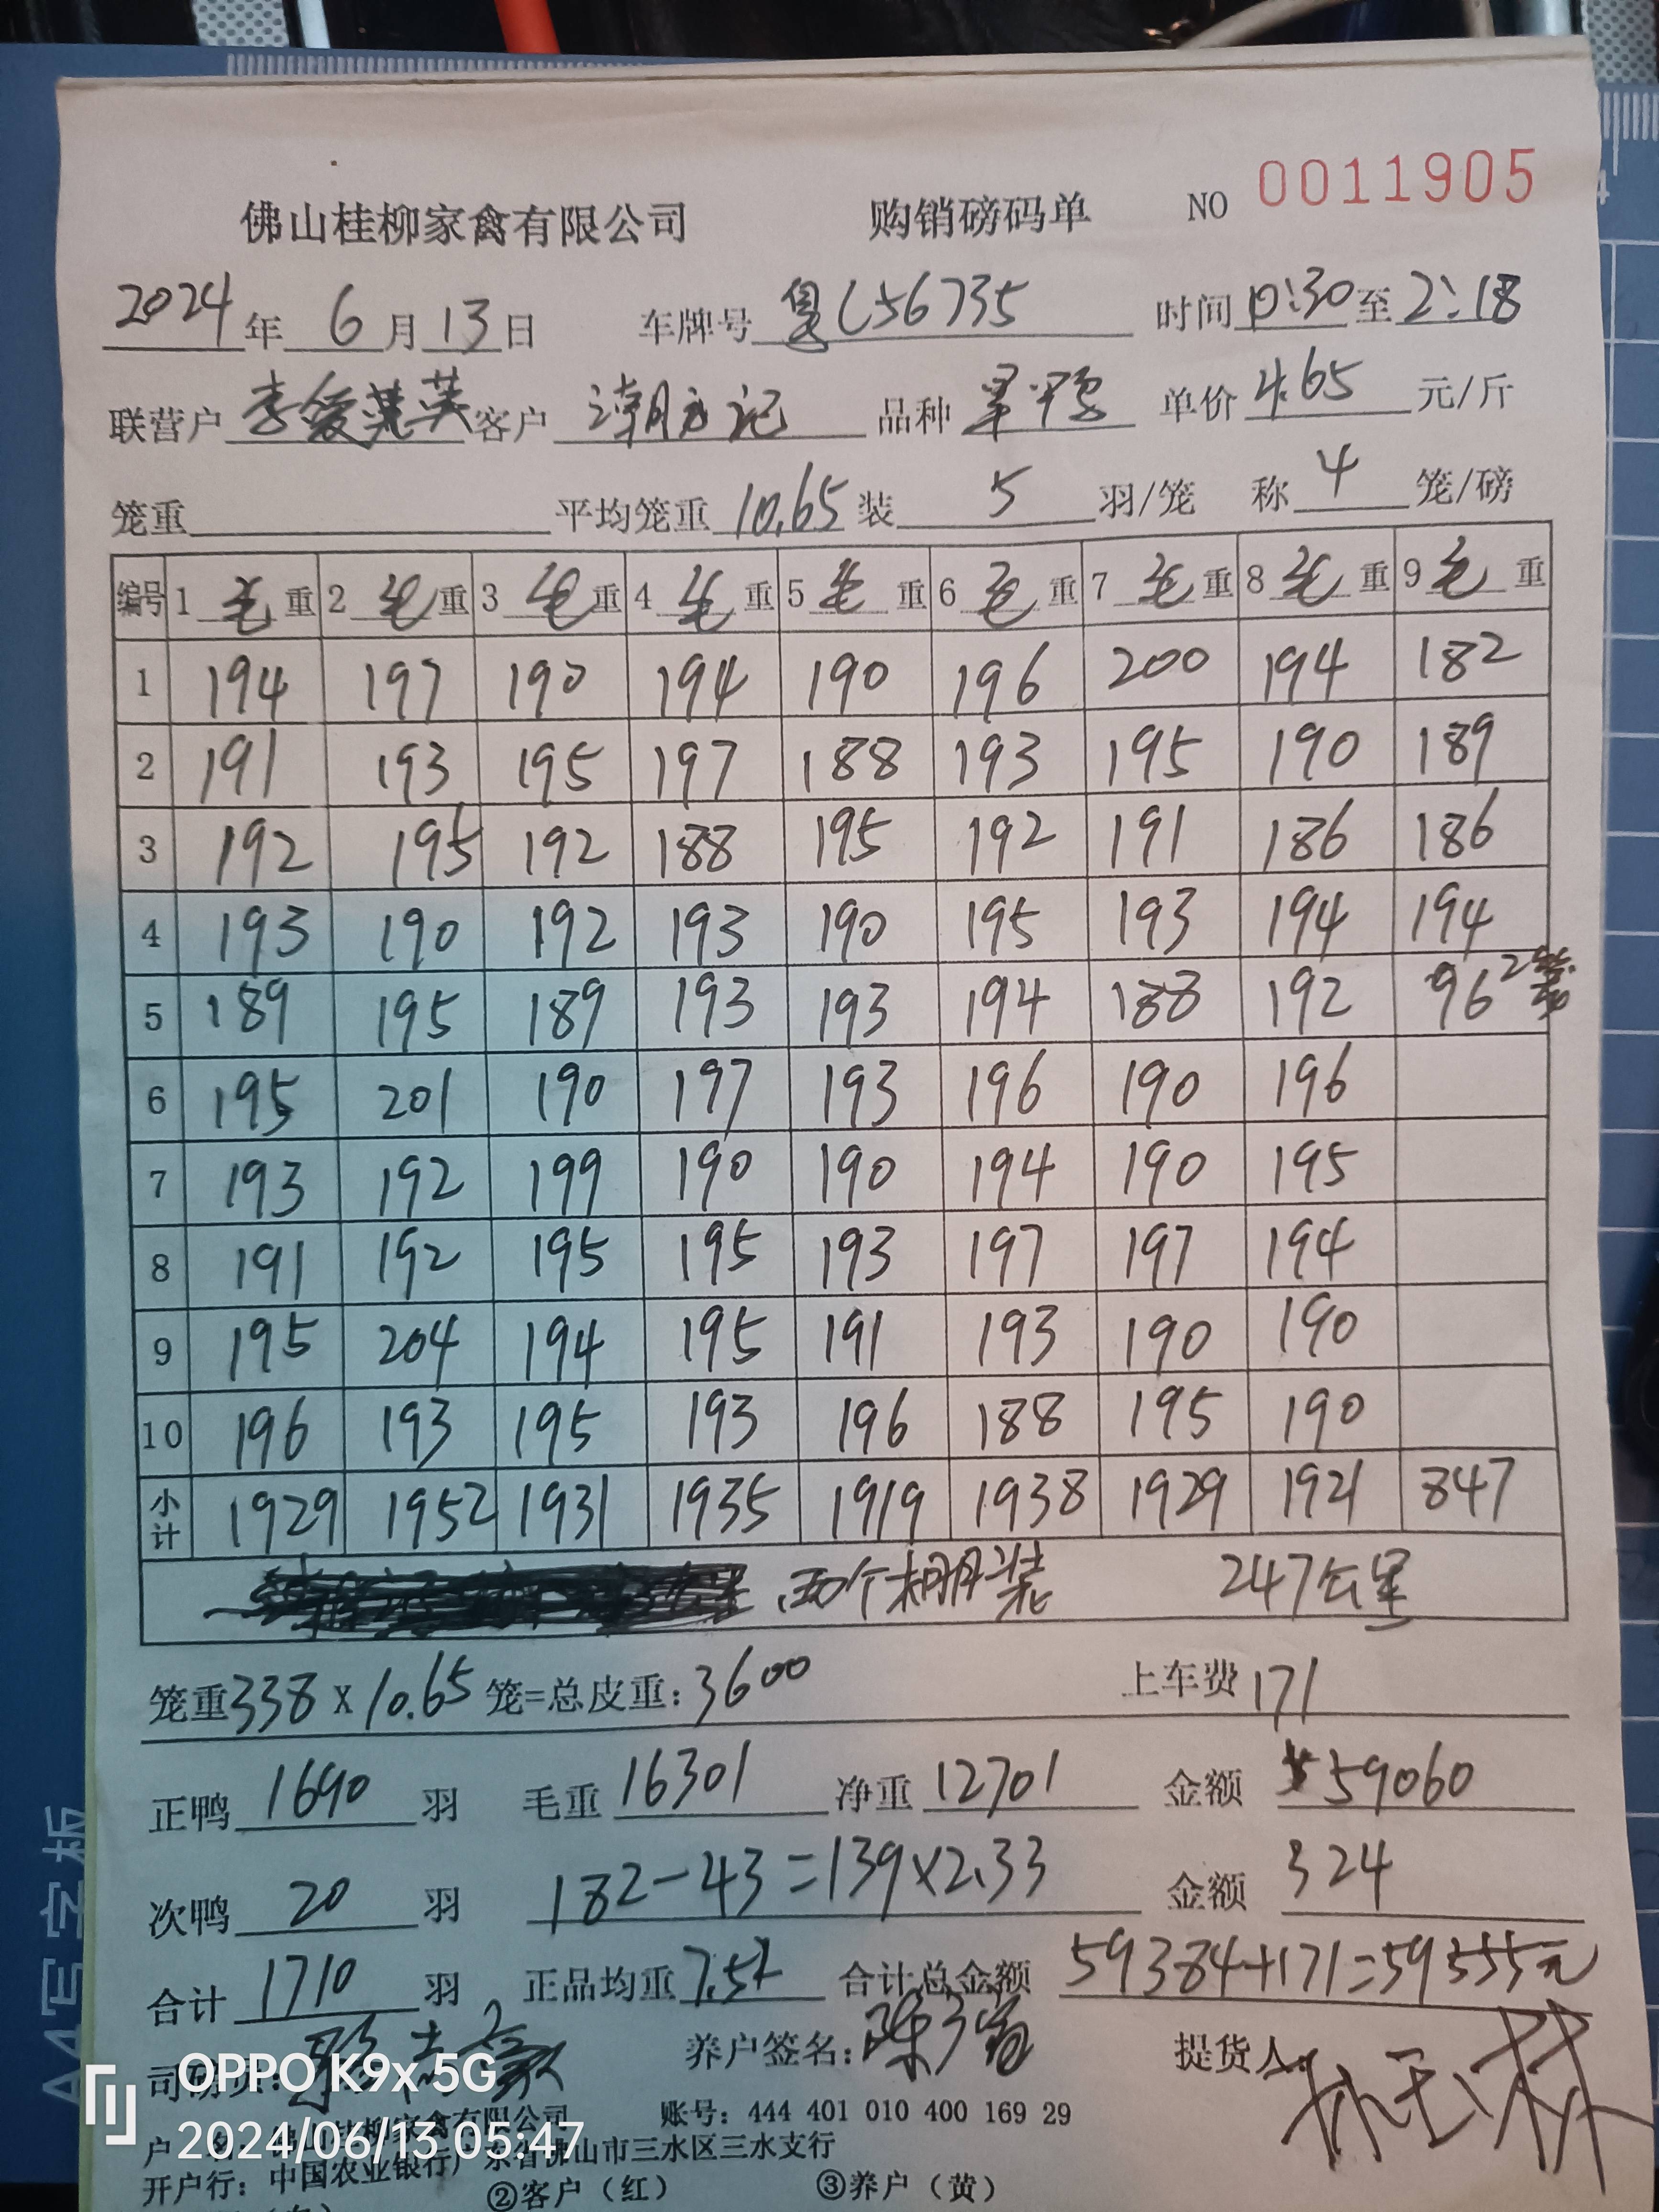 佛山桂柳家禽有限公司 购销磅码单 NO 0011905
2024年 6月13日 车牌号 粤C56735 时间 0:30 至 2:18
联营户 李爱英 客户 潮记 品种 单价 4.65 元/斤
笼重 平均笼重 10.65 装 5 羽/笼 称 4 笼/磅
编号 1 毛 重 2 毛 重 3 毛 重 4 毛 重 5 毛 重 6 毛 重 7 毛 重 8 毛 重 9 毛 重
1 194 197 190 194 190 196 200 194 182
2 191 193 195 197 188 193 195 190 189
3 192 195 192 188 195 192 191 186 186
4 193 190 192 193 190 195 193 194 194
5 189 195 189 193 193 194 188 192 96 2笼
6 195 201 190 197 193 196 190 196
7 193 192 199 190 190 194 190 195
8 191 192 195 195 193 197 197 194
9 195 204 194 195 191 193 190 190
10 196 193 195 193 196 188 195 190
小计 1929 1952 1931 1935 1919 1938 1929 1921 847
两个棚装 247公里
笼重338 X 10.65 笼=总皮重: 3600 上车费 171
正鸭 1690 羽 毛重 16301 净重 12701 金额 59060
次鸭 20 羽 182-43=139×2.33 金额 324
合计 1710 羽 正品均重 7.52 合计总金额 59384+171=59555元
司磅员: 养户签名: 提货人:
户 名: 佛山桂柳家禽有限公司 账号: 444 401 010 400 169 29
开户行: 中国农业银行广东省佛山市三水区三水支行
②客户（红） ③养户（黄）
A4写字板
OPPO K9x 5G
2024/06/13 05:47